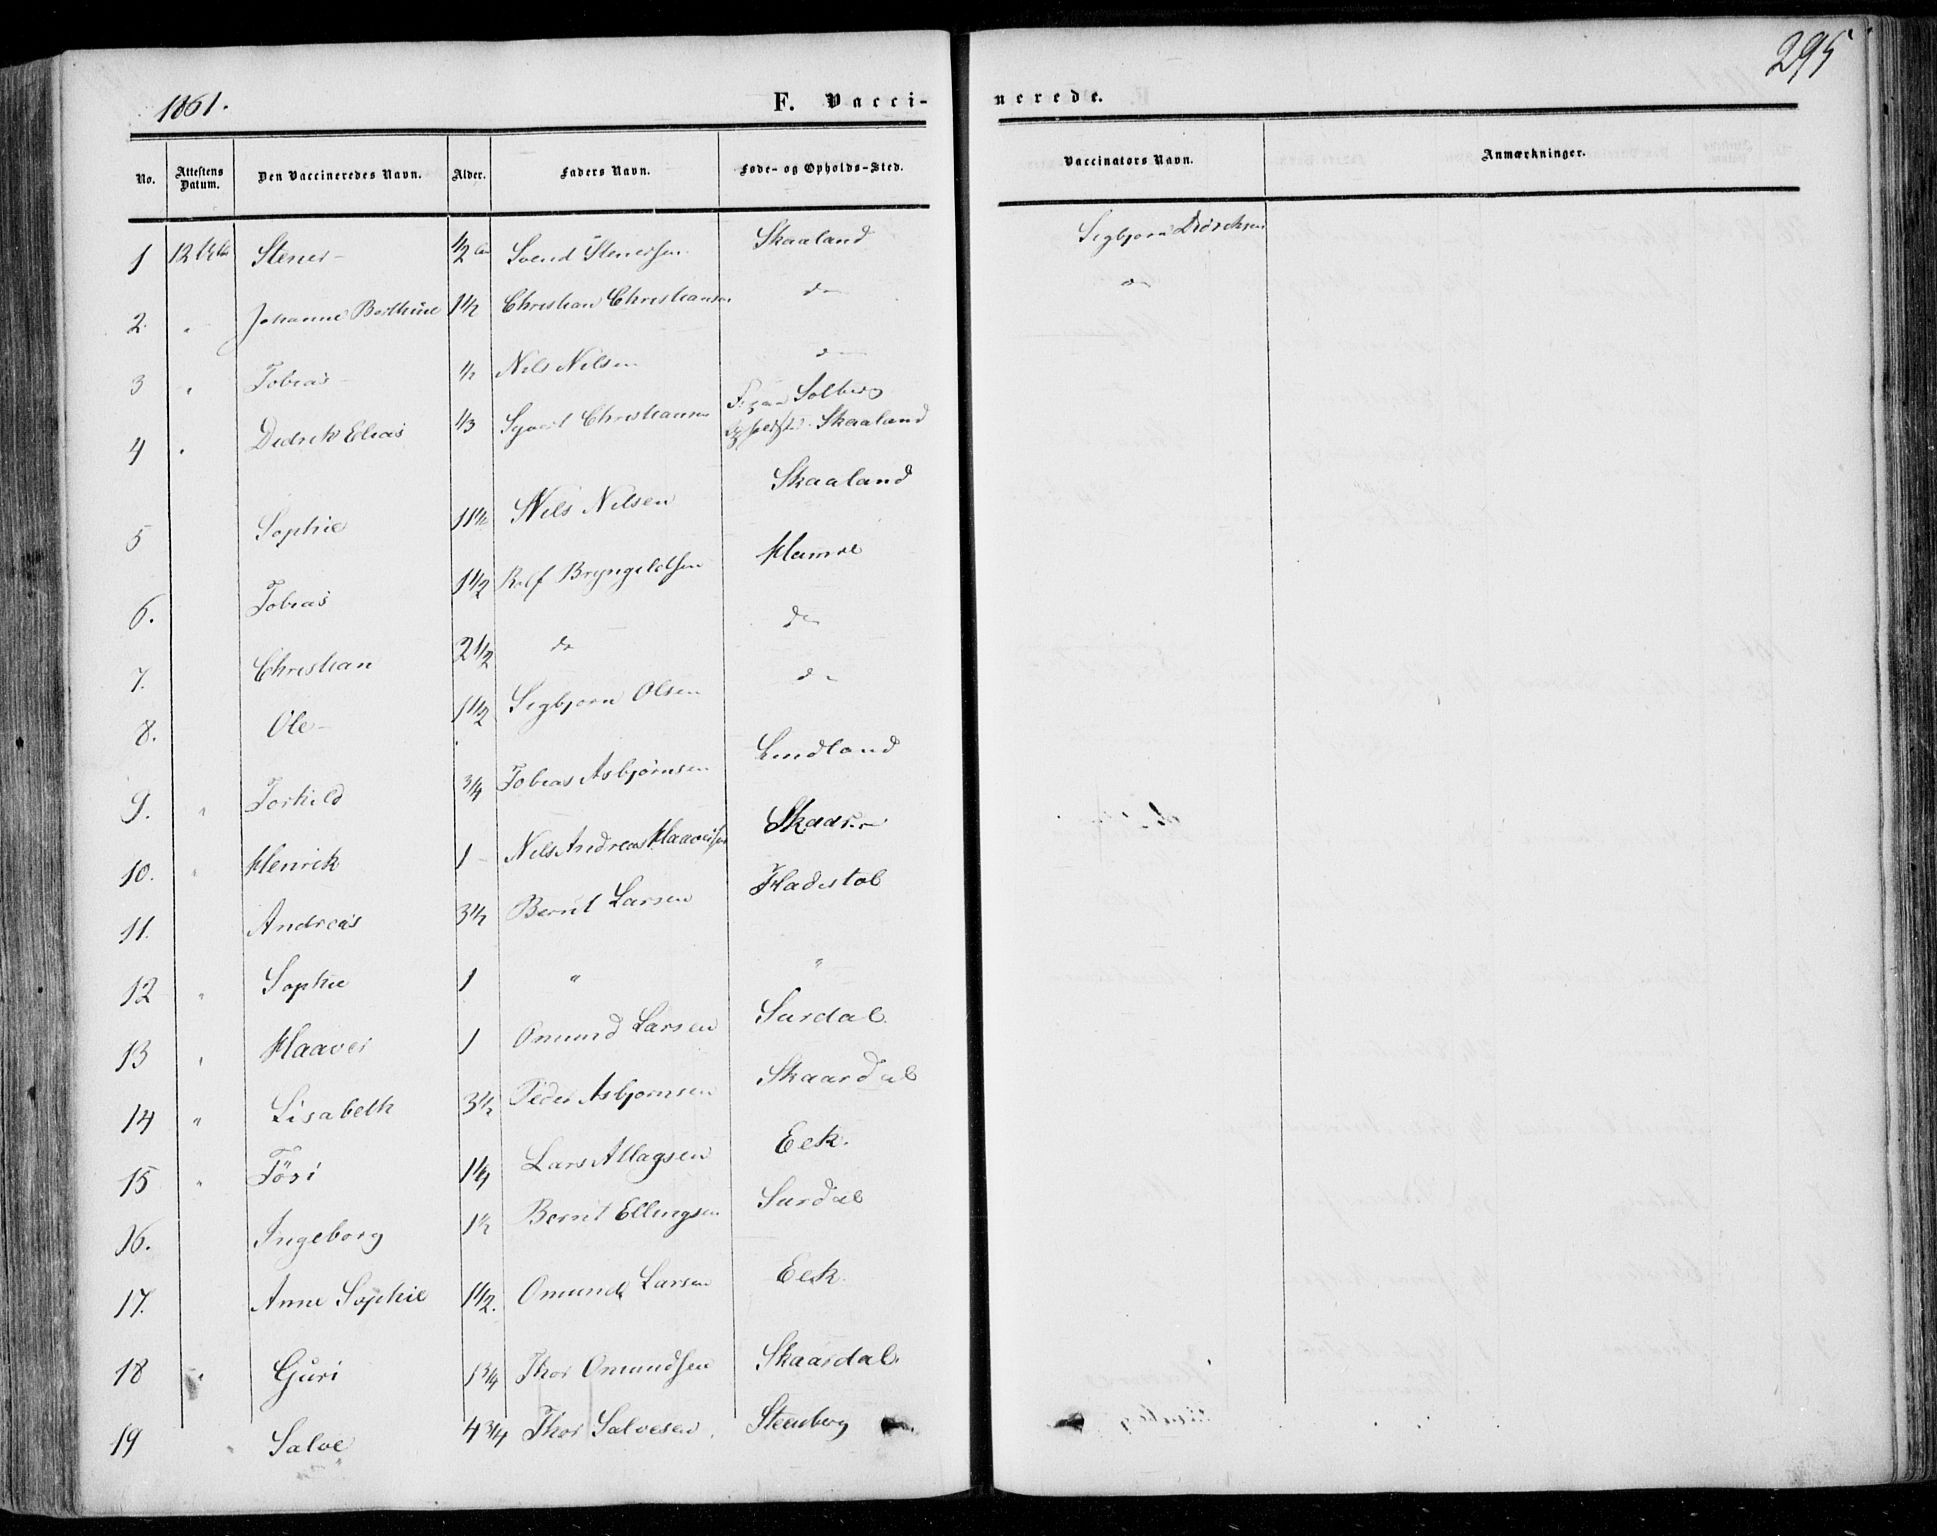 295
1861.
F. Vacci-
nerede.
No. Attestens Datum. Den Vaccineredes Navn. Alder. Faders Navn. Føde- og Opholds-Sted. Vaccinators Navn. Anmærkninger.
1 12 Stener 1/2 Svend Stenersen Skaaland Sigbjørn
2. " Johanne Berthine 1 1/2 Christian Christiansen do do
3 " Tobias 1/2 Nils Nilsen do
4 " Didrik Elias 1/3 Syvert Christiansen Solberg
Skaaland
5 Sophie 11 1/2 Nils Nilsen Skaaland
6. Tobias 1 1/2 Rolf Bryngelsen Hamre
7. Christian 2 1/2 do do
8. Ole 1 1/2 Sigbjørn Olsen do
9. " Torkild 3/4 Tobias Asbjørnsen Lindland
10. " Henrik 1 Nils Andreas Haaversen
11. Andreas 3 1/2 Bernt Larsen Fladstøl
12 " Sophie 1 " "
13 " Haaver 1 Omund Larsen Surdal
14 " Lisabeth 3 1/2 Peder Asbjørnsen Skaardal
15 " Töri 1 1/4 Lars Allagsen Eek.
16. Ingeborg 1 1/2 Bernt Ellingsen Surdal
17. Anne Sophie 1 1/2. Omund Larsen Eek.
18 " Guri 1 3/4 Thor Omundsen Skaardal.
19 Salve 4 3/4 Thor Salvesen. Steenberg